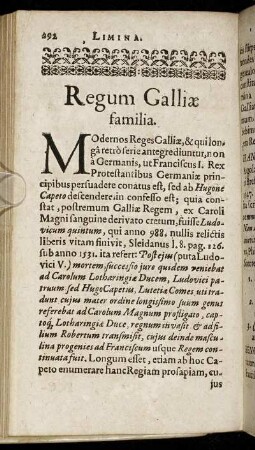 292 LIMINA.
Regum Galliæ
familia.
MOdernos Reges Galliæ, & qui lon-
gâ retrò serie antegrediuntur, non
a Germanis, ut Franciscus I. Rex
Protestantibus Germaniæ prin-
cipibus persuadere conatus est, sed ab Hugone
Capeto descendere in confesso est; quia con-
stat, postremum Galliæ Regem, ex Caroli
Magni sanguine derivato cretum, fuisse Ludo-
vicum quintum, qui anno 988. nullis relictis
liberis vitam finivit, Sleidanus l. 8. pag. 126.
sub anno 1531. ita refert: Post ejus (puta Ludo-
vici V.) mortem successio jure quidem veniebat
ad Carolum Lotharingiæ Ducem, Ludovici pa-
truum sed Hugo Capetus, Lutetiæ Comes uti tra-
dunt cujus mater ordine longissimo suum genus
referebat ad Carolum Magnum profligato, cap-
toq; Lotharingiæ Duce, regnum invasit & ad fi-
lium Robertum transmisit, cujus deinde mascu-
lina progenies ad Franciscum usque Regem con-
tinuata fuit. Longum esset, etiam ab hoc Ca-
peto enumerare hanc Regiam prosapiam, cu-
jus